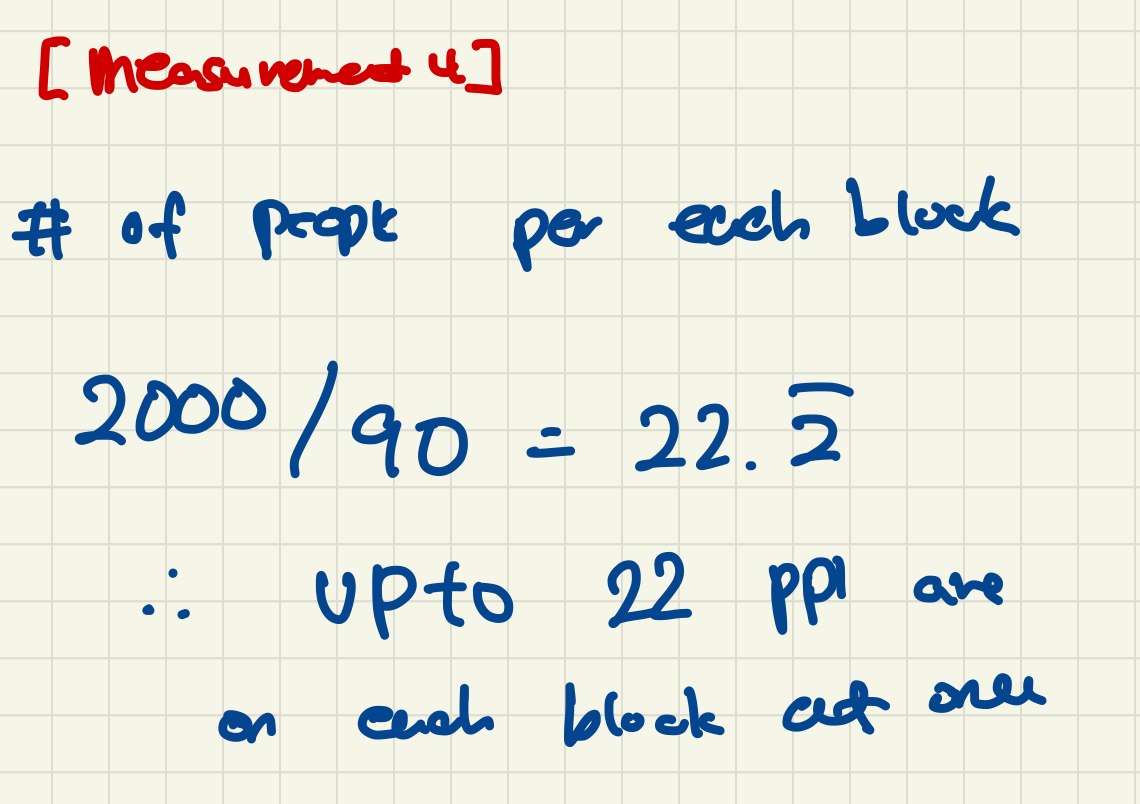 [Measurement 4]
# of people per each block
2000/90 = 22.2̅
∴ upto 22 ppl are
on each block at once